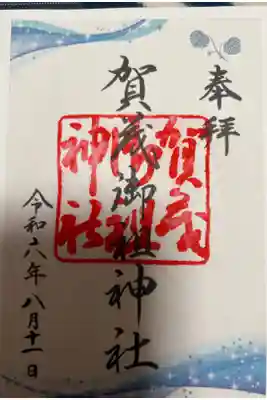 奉拝
賀茂御祖神社
賀茂
御祖
神社
令和六年八月十一日